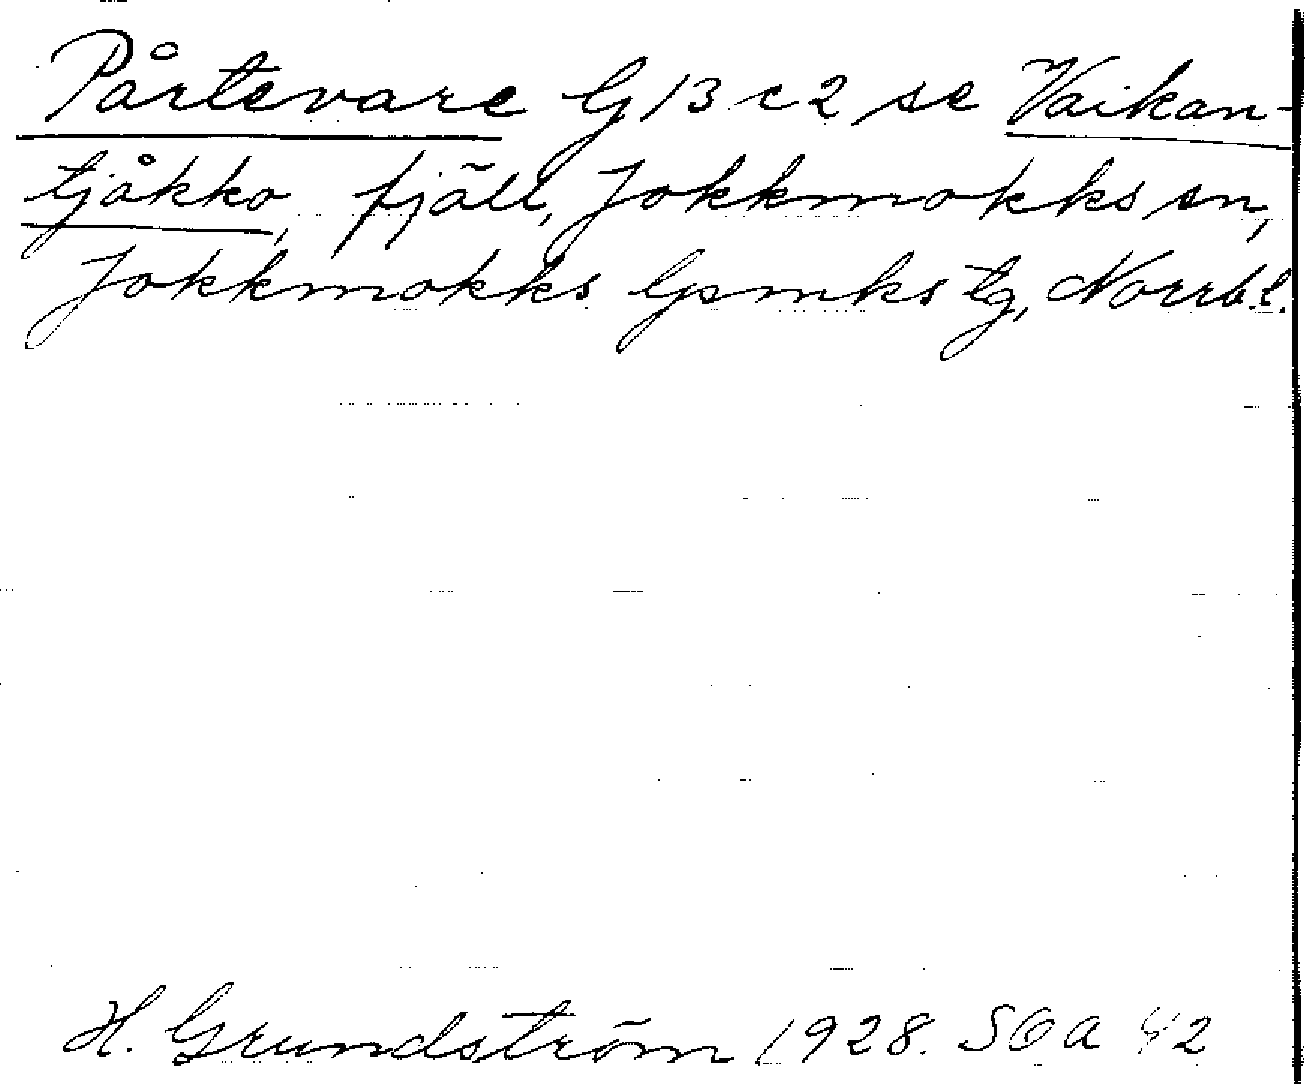 Pårtevare G 13 c 2 se Vaikan-
tjåkko, fjäll, Jokkmokks sn,
Jokkmokks lpmks tg, Norrb.l.
H. Grundström 1928. SOA 42